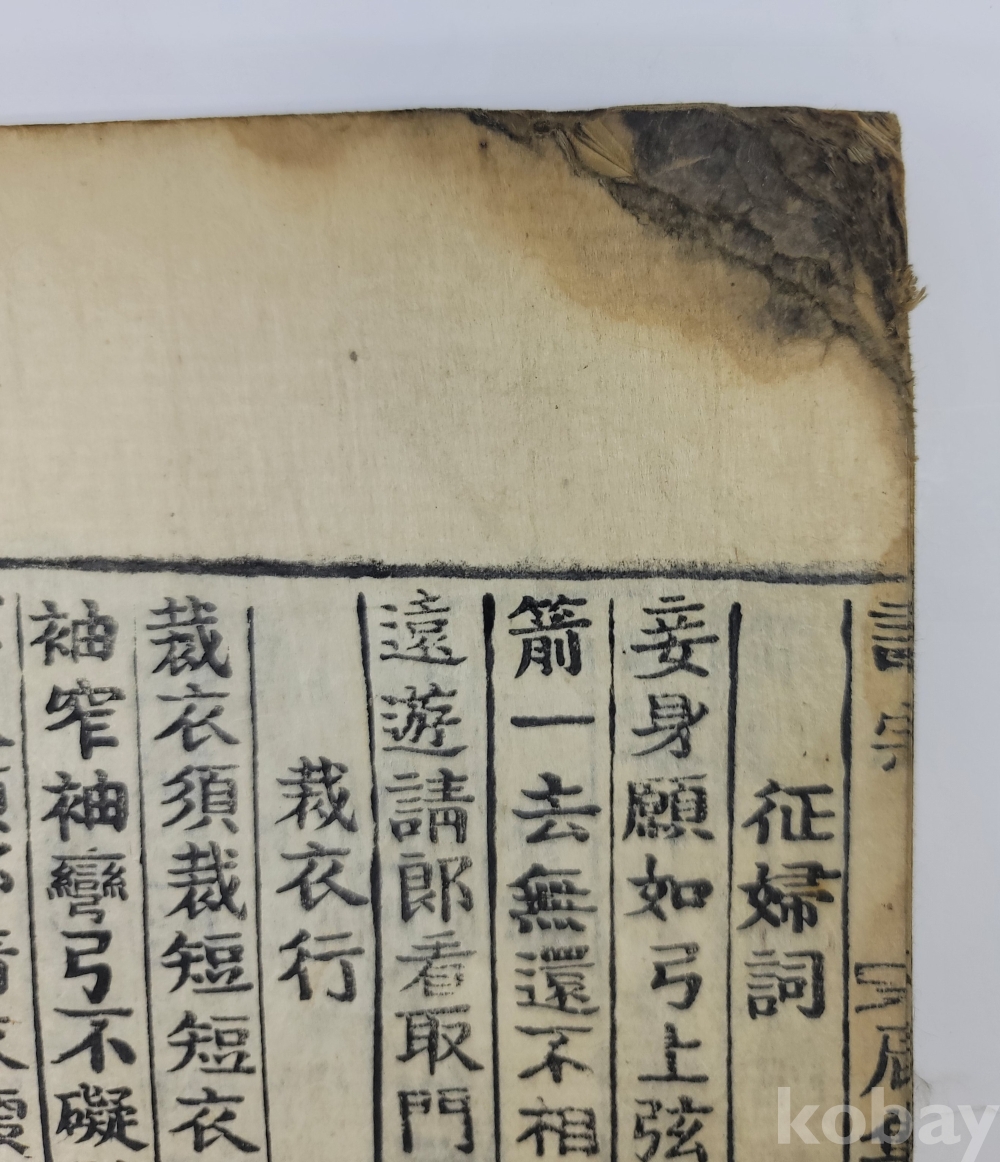 征婦詞
妾身願如弓上弦
箭一去無還不相
遠遊請郎看取門
裁衣行
裁衣須裁短短衣
袖窄袖彎弓不礙
kobay